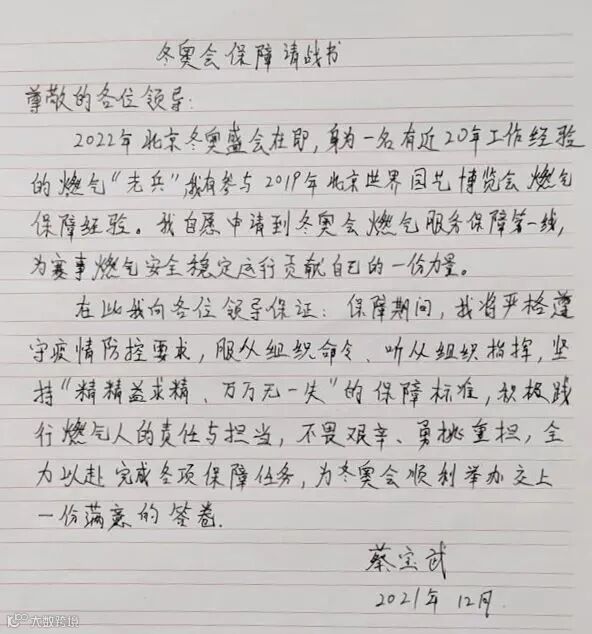 冬奥会保障请战书
尊敬的各位领导:
2022年北京冬奥盛会在即,身为一名有近20年工作经验
的燃气“老兵”,我有参与2019年北京世界园艺博览会燃气
保障经验。我自愿申请到冬奥会燃气服务保障第一线,
为赛事燃气安全稳定运行贡献自己的一份力量。
在此我向各位领导保证:保障期间,我将严格遵
守疫情防控要求,服从组织命令、听从组织指挥,坚
持“精精益求精、万万无一失”的保障标准,积极践
行燃气人的责任与担当,不畏艰辛、勇挑重担,全
力以赴完成各项保障任务,为冬奥会顺利举办交上
一份满意的答卷.
蔡宝武
2021年12月.
大数跨境